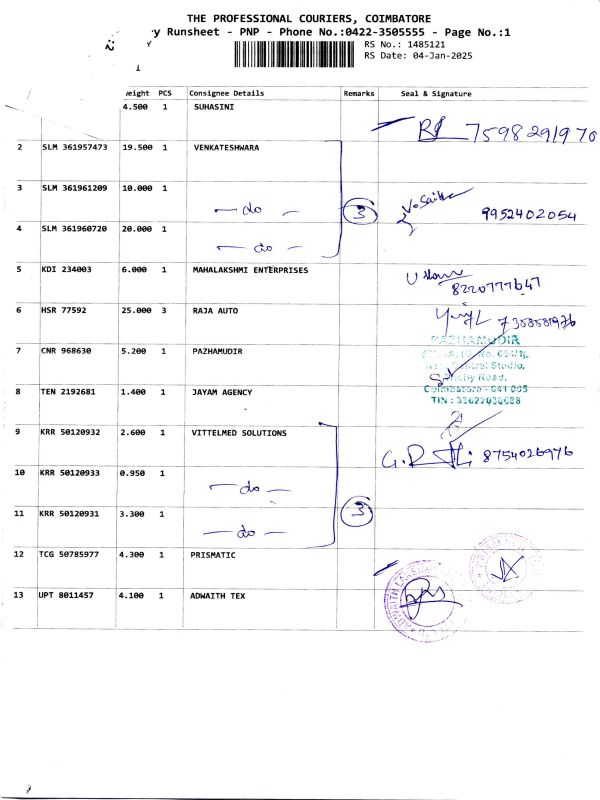 THE PROFESSIONAL COURIERS, COIMBATORE
y Runsheet - PNP - Phone No.:0422-3505555 - Page No.:1
RS No.: 1485121
RS Date: 04-Jan-2025
eight PCS Consignee Details Remarks Seal & Signature
4.500 1 SUHASINI
7598291970
2 SLM 361957473 19.500 1 VENKATESHWARA
3 SLM 361961209 10.000 1
- do - 3 9952402054
4 SLM 361960720 20.000 1
- do -
5 KDI 234003 6.000 1 MAHALAKSHMI ENTERPRISES
8220777647
6 HSR 77592 25.000 3 RAJA AUTO
PAZHAMUDIR
7 CNR 968630 5.200 1 PAZHAMUDIR
Central Studio,
Road,
8 TEN 2192681 1.400 1 JAYAM AGENCY
Coimbatore - 641 005
TIN : 33622030688
9 KRR 50120932 2.600 1 VITTELMED SOLUTIONS
8754026976
10 KRR 50120933 0.950 1
- do -
11 KRR 50120931 3.300 1 3
- do -
12 TCG 50785977 4.300 1 PRISMATIC
13 UPT 8011457 4.100 1 ADWAITH TEX